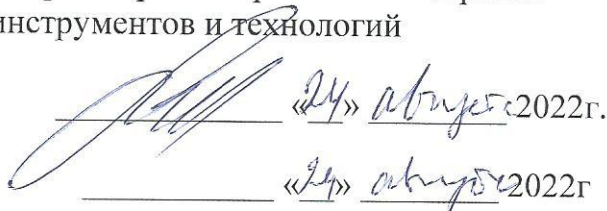 инструментов и технологий
«24» августа 2022г.
«24» августа 2022г